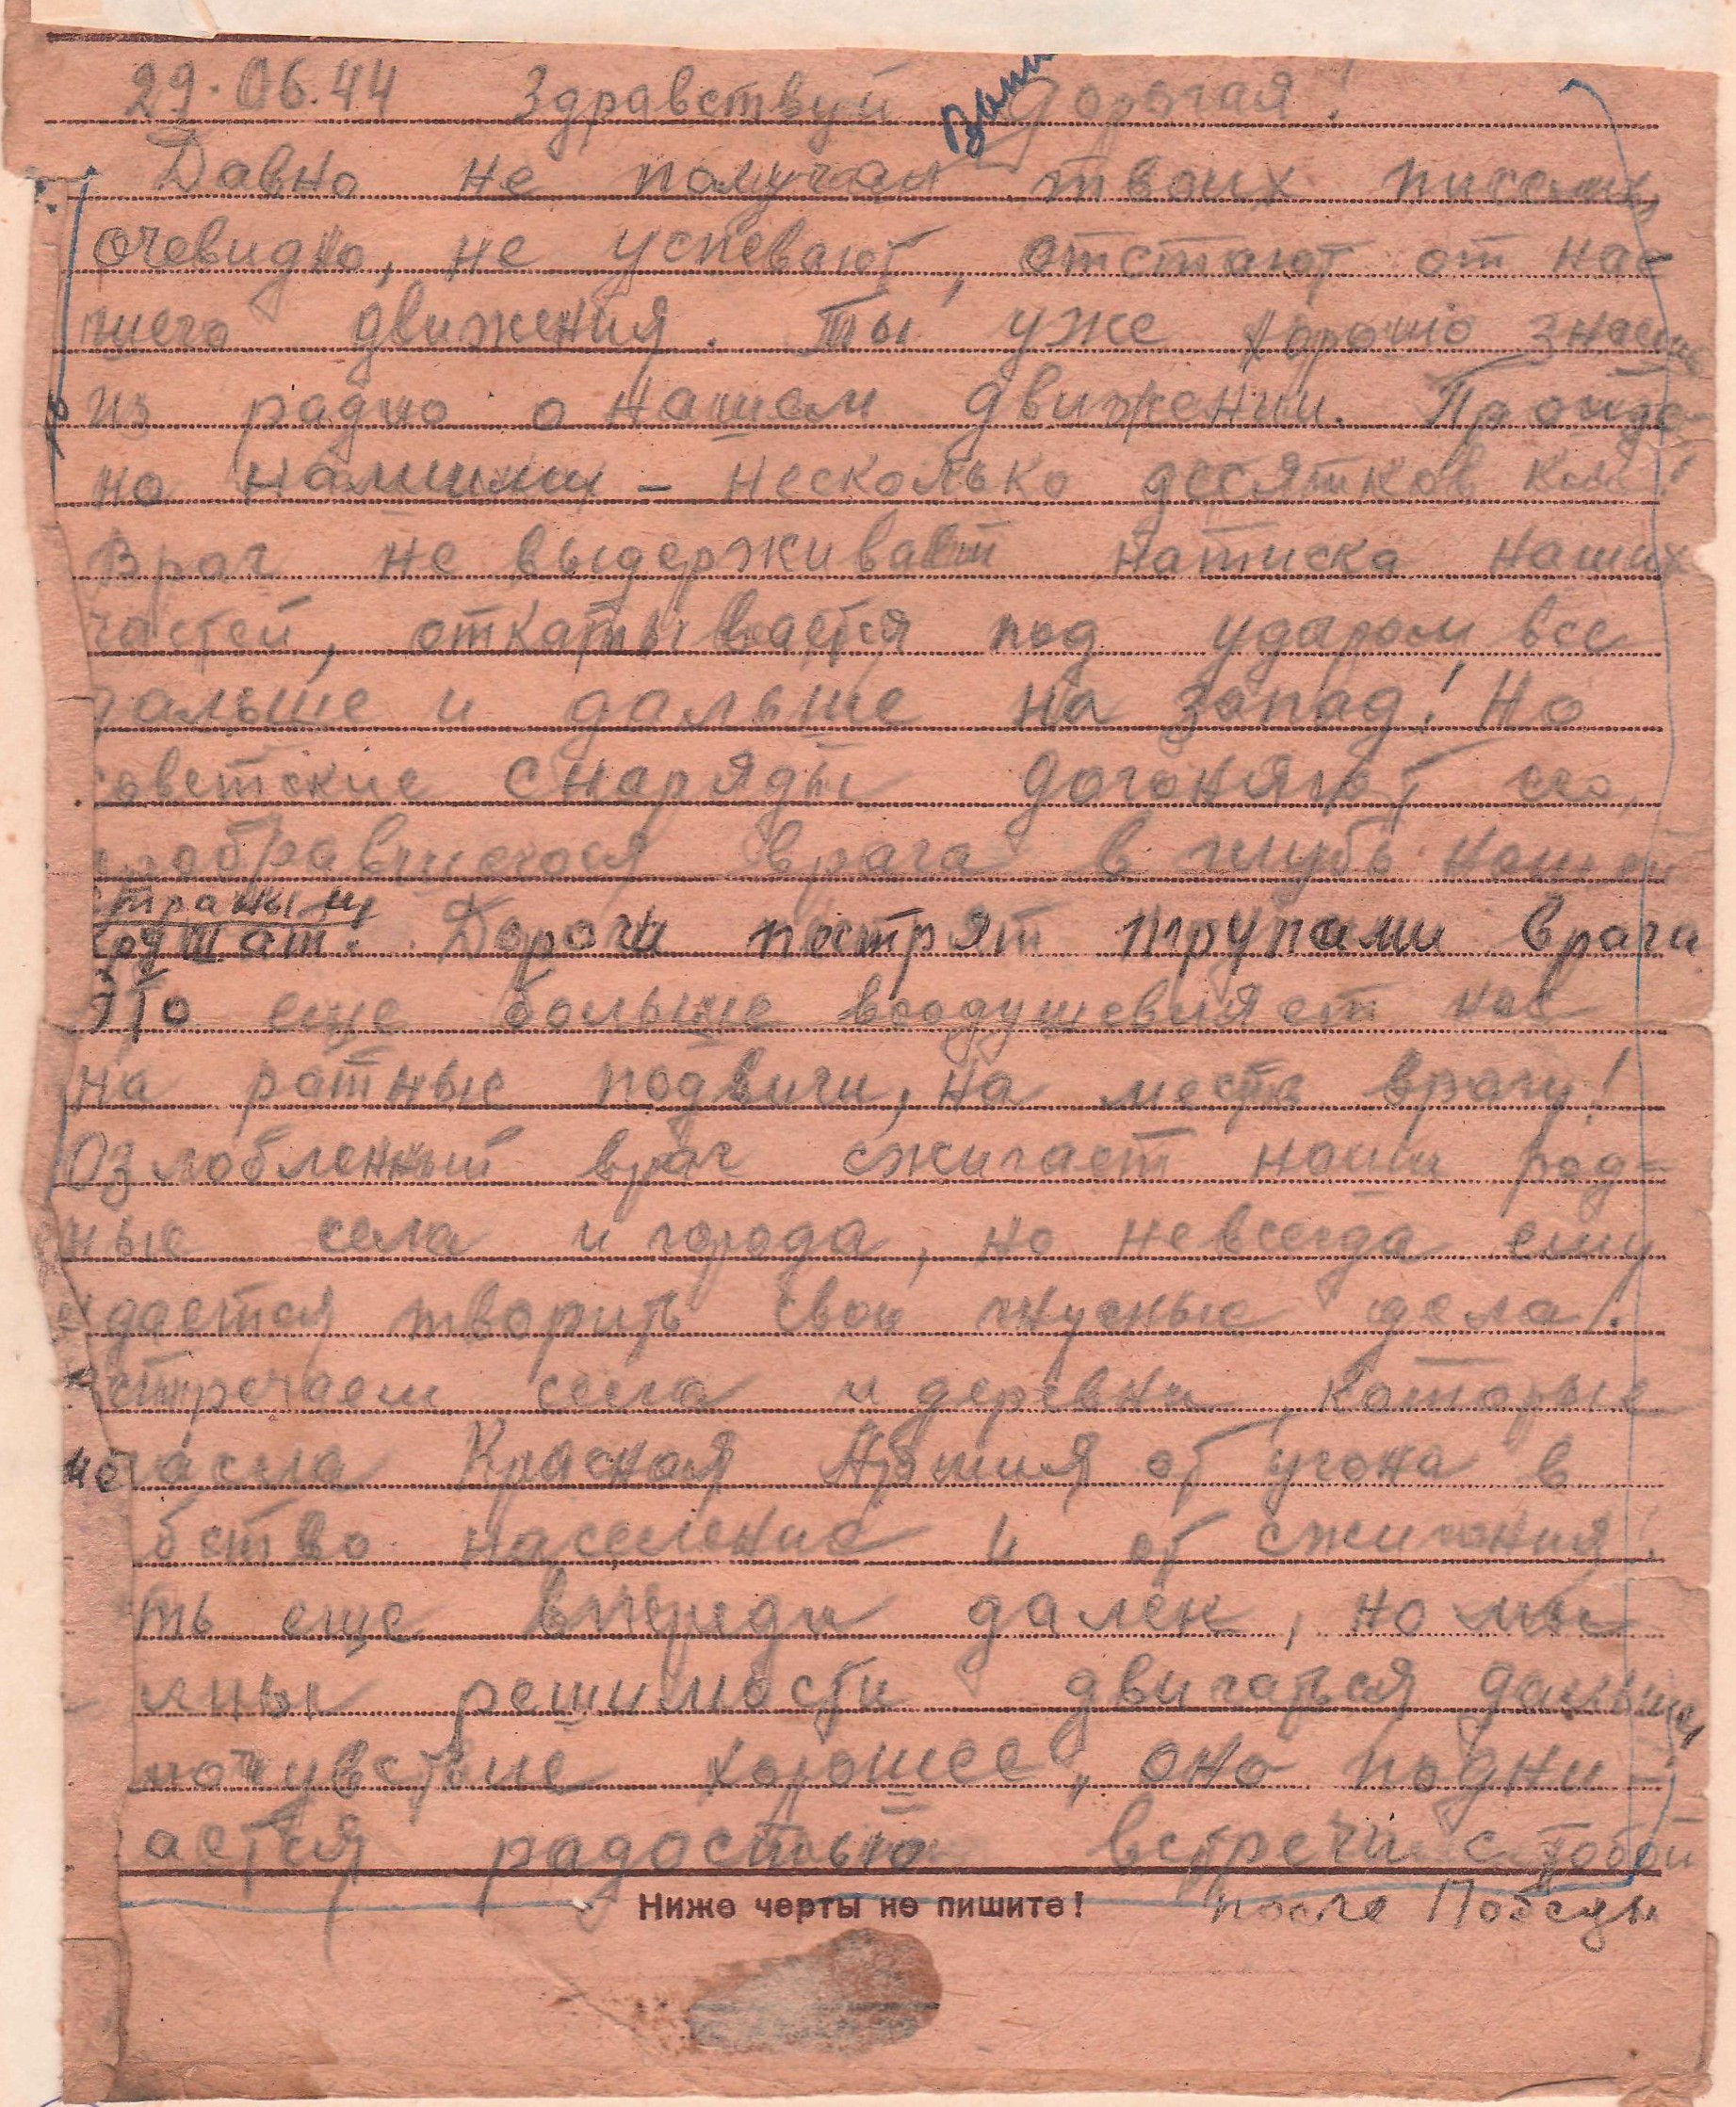 29.06.44 Здравствуй дорогая!
Давно не получал твоих писем,
очевидно, не успевают, отстают от на-
шего движения. Ты уже хорошо знаешь
из радио о нашем движении. Пройде-
но нашими – несколько десятков км!
Враг не выдерживает натиска наших
частей, откатывается под ударом все
дальше и дальше на запад! Но
советские снаряды догоняют его,
пробравшегося врага в глубь нашей
страны и
Дороги пестрят трупами врага
Это еще больше воодушевляет нас
на ратные подвиги, на месть врагу!
Озлобленный враг сжигает наши род-
ные села и города, но невсегда ему
удается творить свои гнусные дела!
Встречаем села и деревни, которые
спасла Красная Армия от угона в
бство население и от сжигания!
ть еще впереди далек, но мы
лны решимости двигаться дальше,
мочувствие хорошее, оно подни-
ается радостью встречи с тобой
после Победы
Ниже черты не пишите!